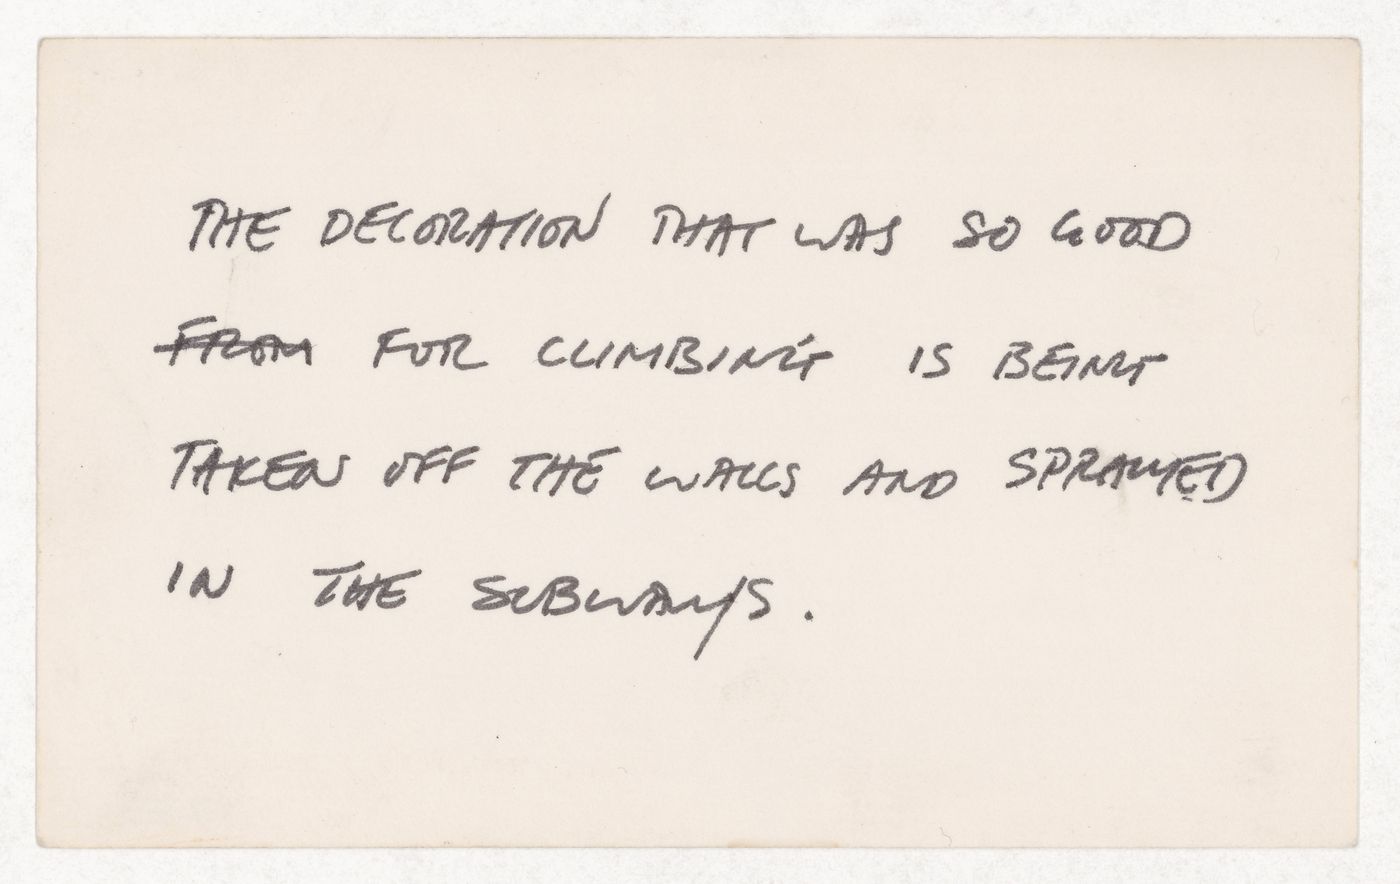 THE DECORATION THAT WAS SO GOOD
FROM FOR CLIMBING IS BEING
TAKEN OFF THE WALLS AND SPRAYED
IN THE SUBWAYS.